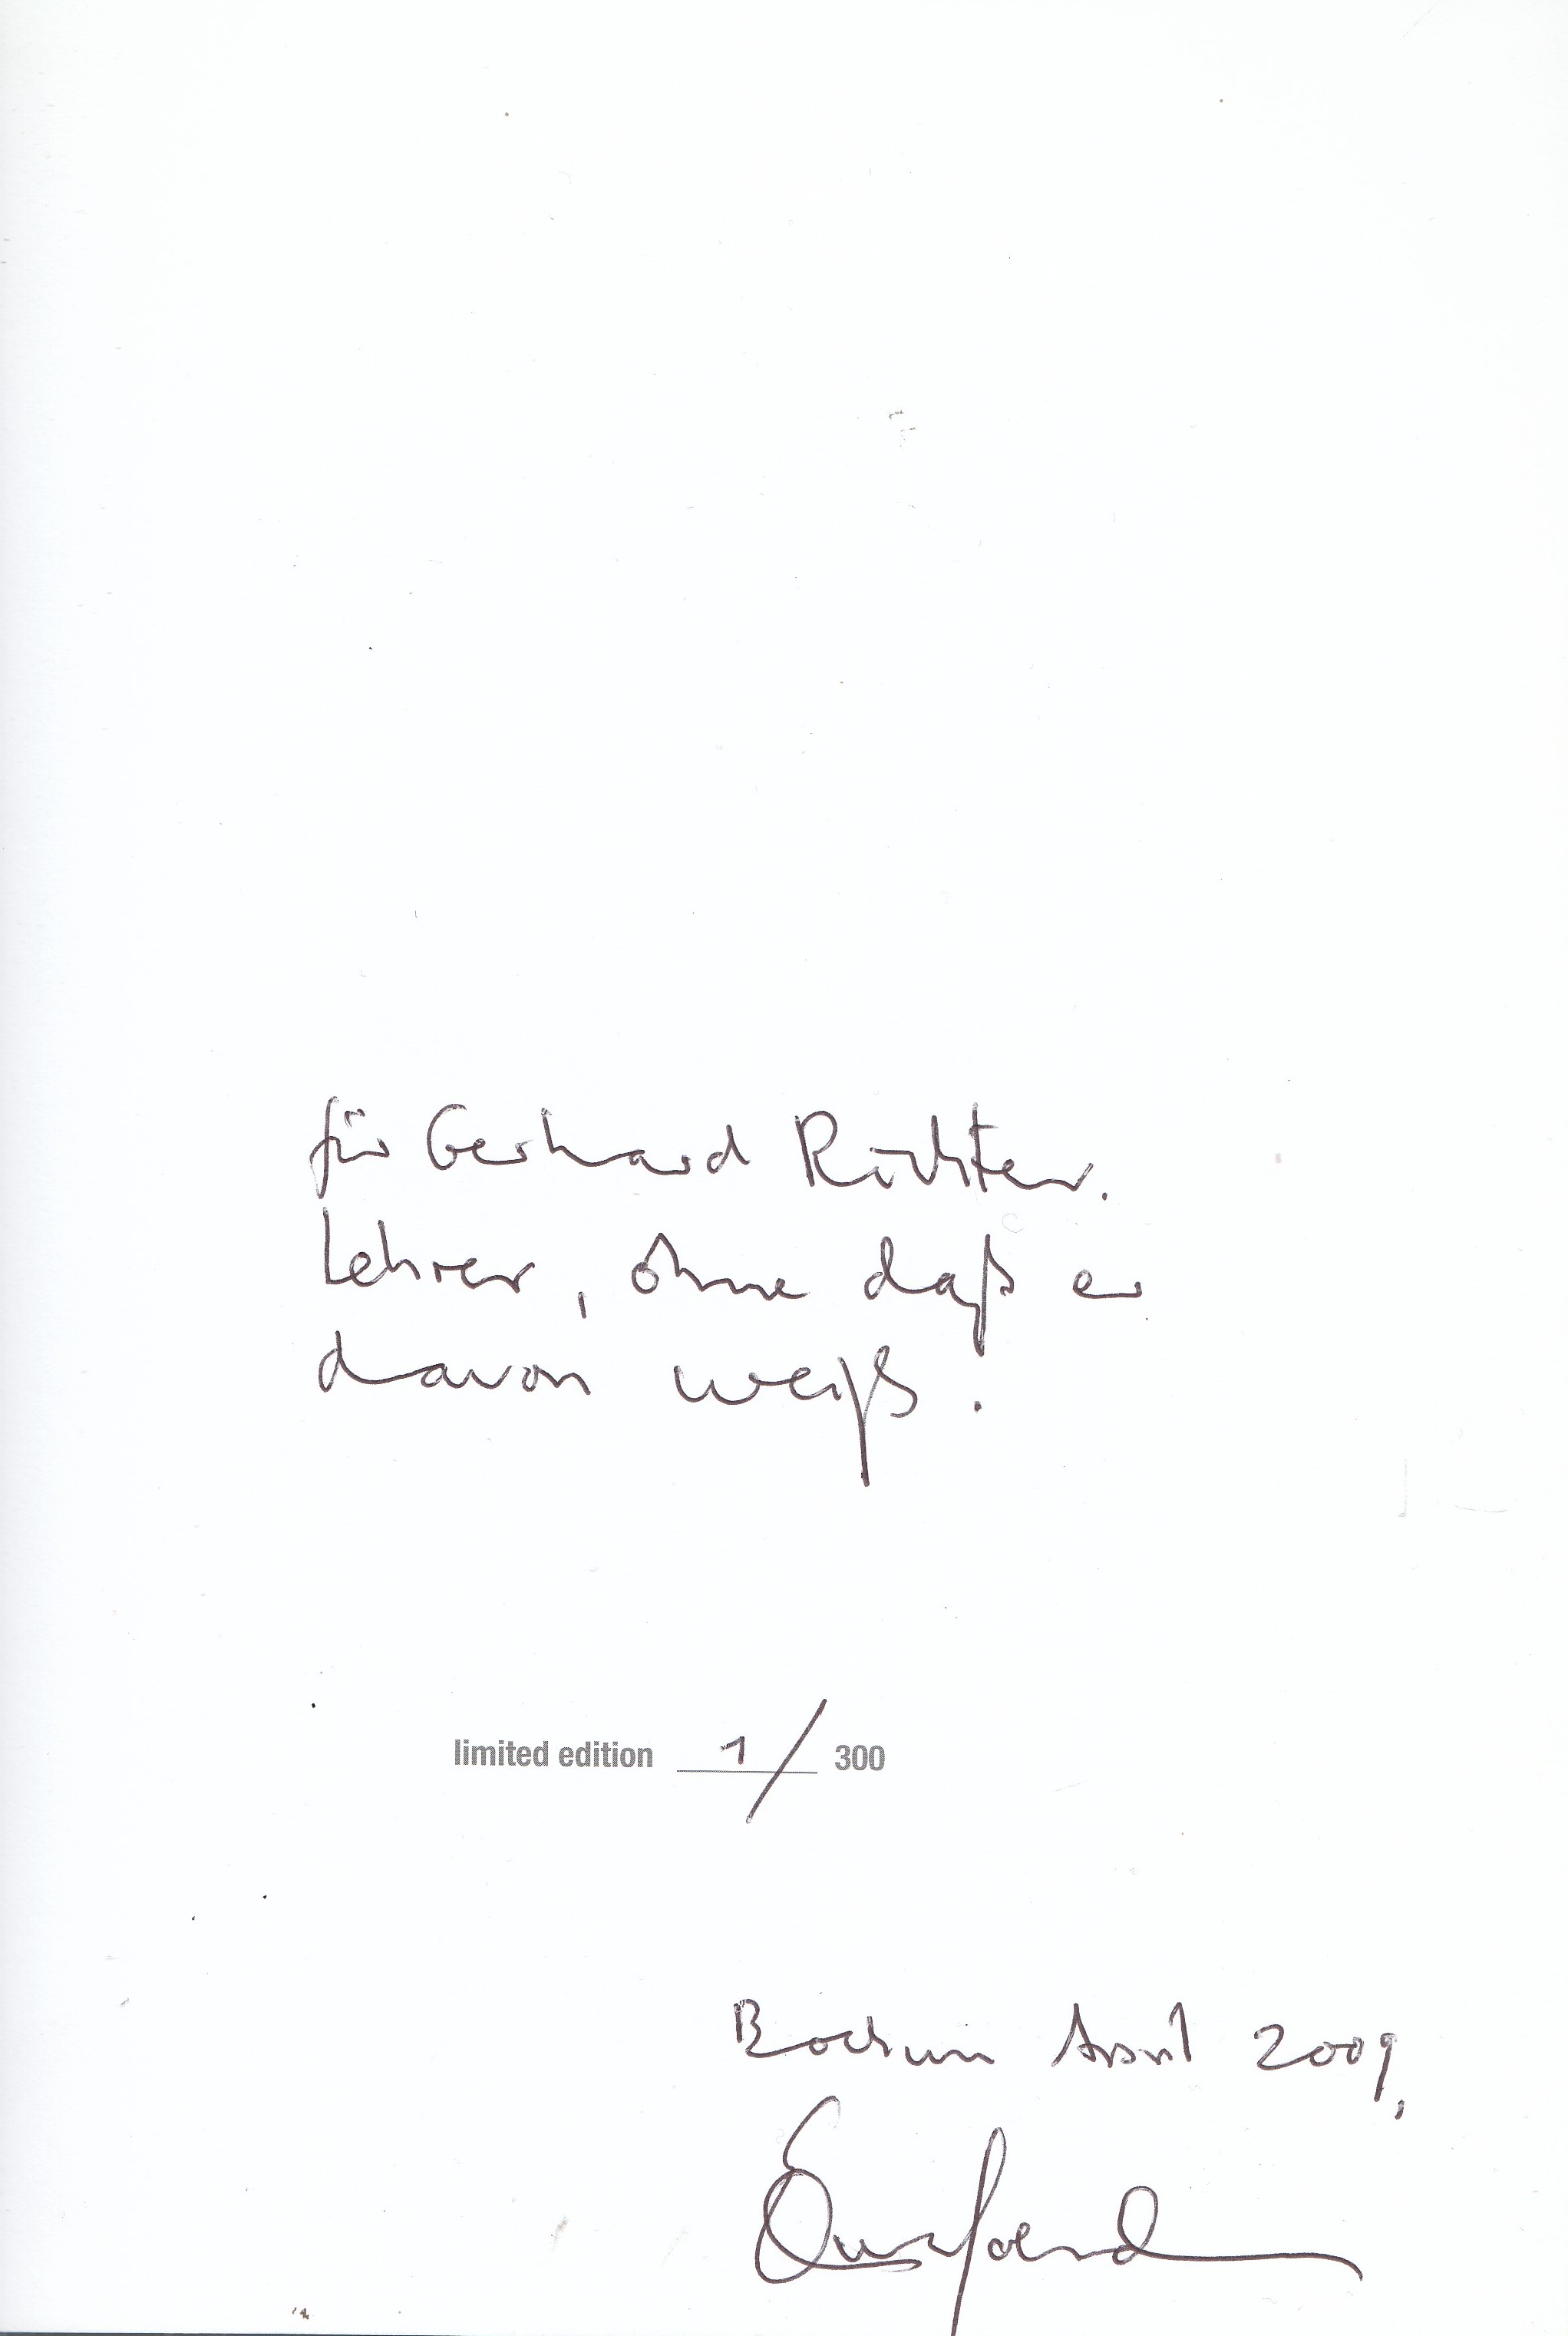 für Gerhard Richter.
Lehrer, ohne daß er
davon weiß.
limited edition 1/300
Bochum April 2009,